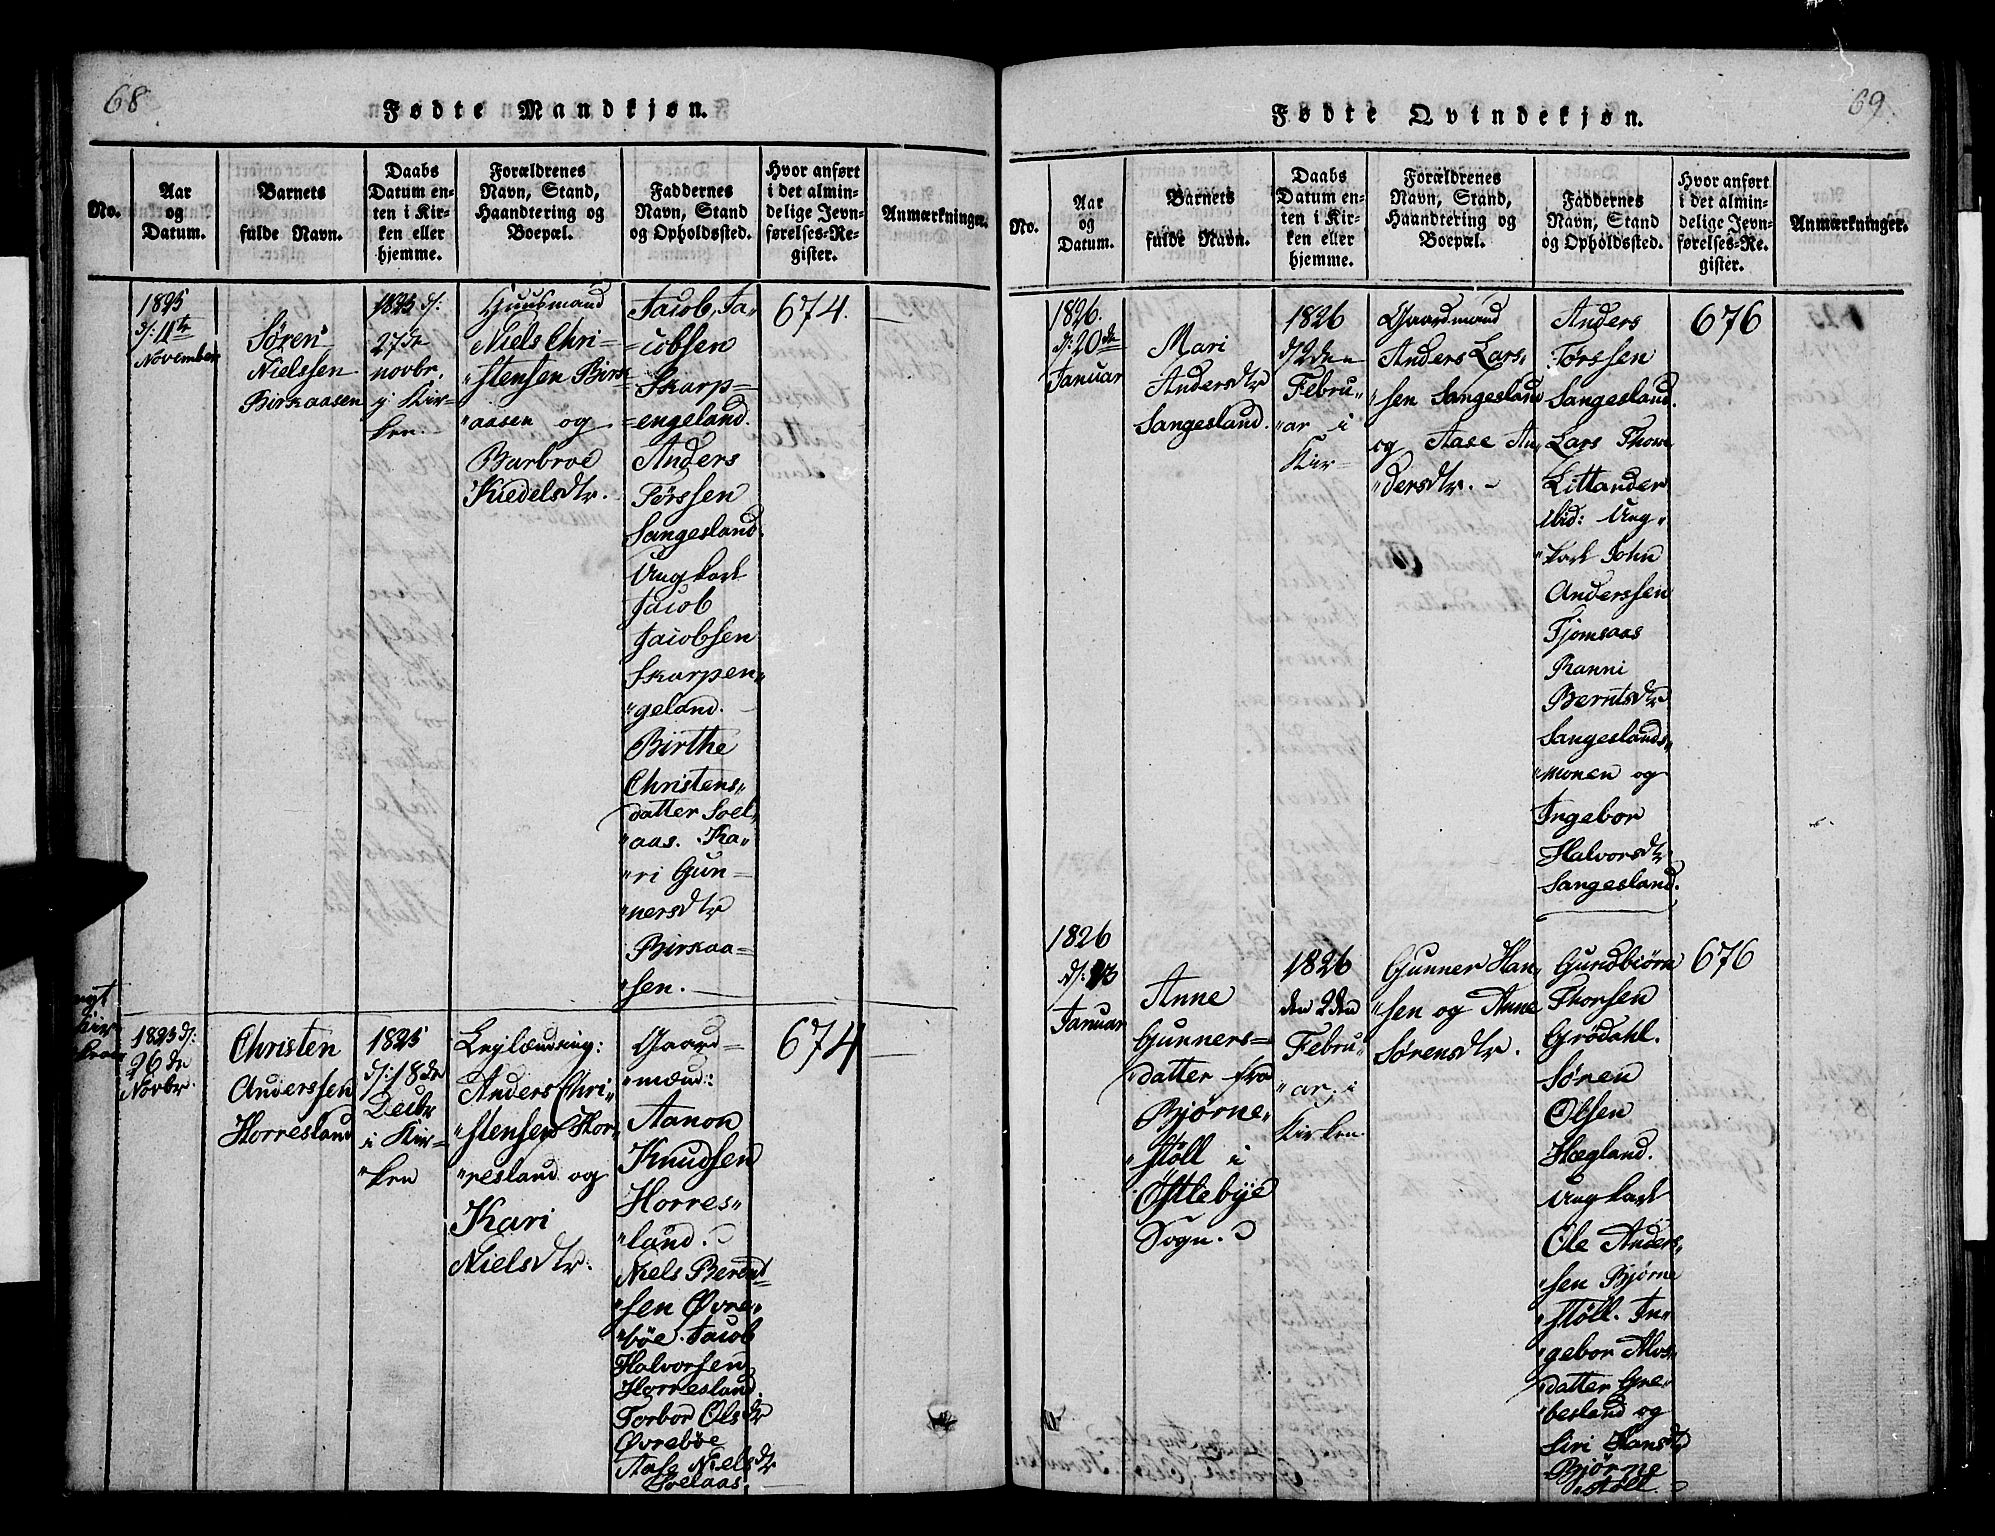 68
Fødte Mandkjøn.
No.
Aar
og
Datum.
Barnets
fulde Navn.
Daabs
Datum en-
ten i Kir-
ken eller
hjemme.
Forældrenes
Navn, Stand,
Haandtering og
Boepæl.
Faddernes
Navn, Stand
og Opholdssted.
Hvor anført
i det almin-
delige Jevn-
førelses-Re-
gister.
Anmærkninger.
1825
d: 11te
November
Søren
Nielssen
Birkaasen
1825 d:
27de
novbr.
i Kir-
ken.
Huusmand
Niels Chri-
"stensen Birk
"aasen og
Barbroe
Kiedelsdtr.
Jacob Ja-
=cobsen
Skarp=
=engeland.
Anders
Torssen
Sangesland.
Ungkarl
Jacob
Jacobsen
Skarpen"
"geland.
Birthe
Christens"
datter Soel"
"aas. Ka-
"ri Gun-
"nersdtr
Birkaa=
"sen.
674.
nyt
Kir-
1825 d:
26de
Novbr.
Christen
Anderssen
Horresland
1825
d: 18de
Decbr
i Kir-
"ken
Leylænding:
Anders Chri-
"stensen Hor-
"resland og
Kari
Nielsdtr.
Gaard-
"mænd:
Aanon
Knudsen
Horres-
"land.
Niels Berendt
"sen Øvre-
"bøe. Jacob
Halvorsen
Horresland.
Torbor Olsdtr
Øvrebøe
Aase Nielsdtr
Soelaas.
674
69.
Fødte Qvindekjøn.
No.
Aar
og
Datum.
Barnets
fulde Navn.
Daabs
Datum en-
ten i Kir-
ken eller
hjemme.
Forældrenes
Navn, Stand,
Haandtering og
Boepæl.
Faddernes
Navn, Stand
og Opholdssted.
Hvor anført
i det almin-
delige Jevn-
førelses-Re-
gister.
Anmærkninger.
1826.
d: 20de
Januar
Mari
Andersdtr
Sangesland.
1826
d 2den
Febru-
"ar i
Kir-
Gaardmand
Anders Lars-
"sen Sangesland
og Aase An-
"dersdtr.
Anders
Torssen
Sangesland.
Lars Thore
Littander
ibid: Ung-
"karl John
Anderssen
Tjomsaas
Ranni
Berntsdtr
Sangeslands-
"monen og
Ingebor
Halvorsdtr
Sangesland.
676
1826
d: 23
Januar
Anne
Gunners=
"datter fra
Bjørne-
"støll i
Østlebye
Sogn.
1826
den 2den
Febru-
"ar. i
Kirken
Gunner Han-
"sen og Anne
Sørensdtr.
Gundbiørn
Thorsen
Grødahl.
Søren
Olsen
Hægland.
Ungkarl
Ole Anders-
"sen Bjørne
"støll. In-
"gebor Alvs-
"datter Gre-
"besland og
Siri Hansdtr
Bjørne
"støll.
676